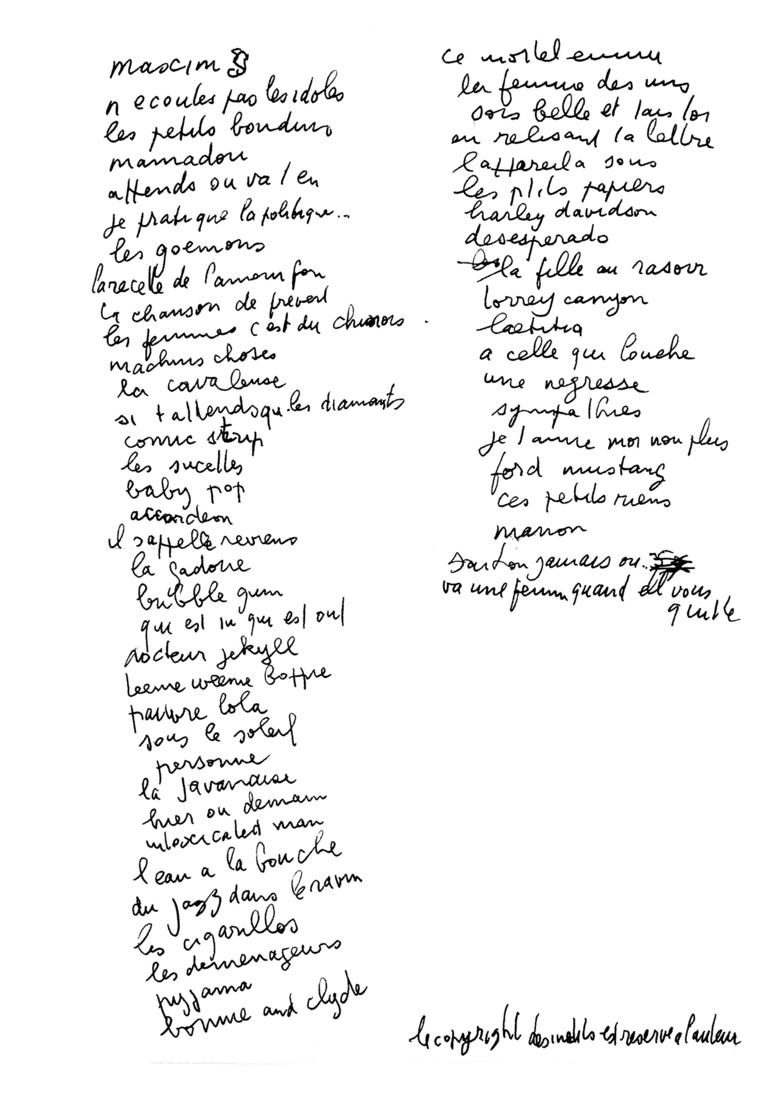 maxim s
n ecoutes pas les idoles
les petits boudins
mamadou
attends ou va t en
je pratique la politique...
les goemons
la recette de l'amour fou
la chanson de prevert
les femmes c est du chinois
machins choses
la cavaleuse
si t attends que les diamants
comic strip
les sucettes
baby pop
accordeon
il s appelle reviens
la gadoue
bubble gum
qui est in qui est out
docteur jekyll
teenie weenie boppie
pauvre lola
sous le soleil
personne
la javanaise
hier ou demain
intoxicated man
l eau a la bouche
du jazz dans le ravin
les cigarillos
les demenageurs
pyjama
bonnie and clyde
ce mortel ennui
la femme des uns
sois belle et tais toi
en relisant ta lettre
l appareil a sous
les p'tits papiers
harley davidson
desesperado
la fille au rasoir
torrey canyon
laetitia
a celle qui louche
une negresse
sympathies
je t aime moi non plus
ford mustang
ces petits riens
manon
sait on jamais ou
va une femme quand elle vous
quitte
le copyright des inedits est reserve a l'auteur